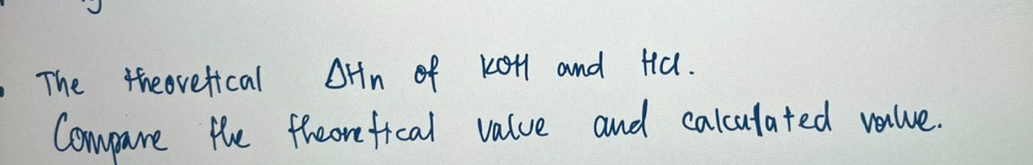 The theoretical ΔHn of KOH and HCl.
Compare the theoretical value and calculated value.